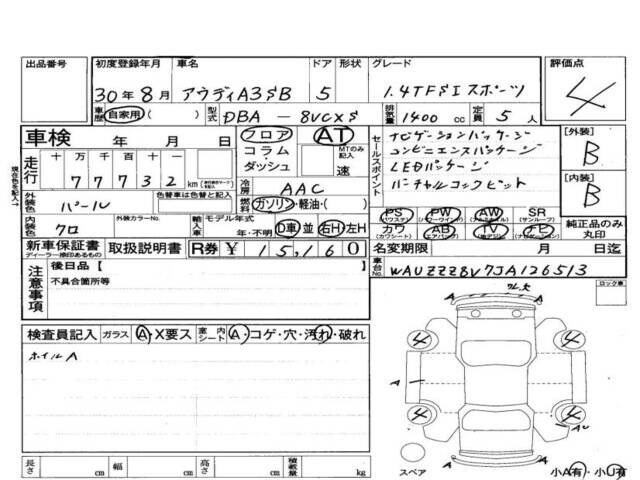 出品番号 初度登録年月 車名 ドア 形状 グレード 評価点
30年8月 アウディA3SB 5 1.4TFSIスポーツ 4
車歴 自家用( ) 型式 DBA-8VCXS 排気量 1400cc 定員 5人
車検 年 月 日 フロア AT セールスポイント ナビゲーションパッケージ [外装]
コラム MTのみ記入 コンビニエンスパッケージ B
走行 十 万 千 百 十 一 ダッシュ 速 LEDパッケージ
77732 km 冷房 AAC バーチャルコックピット [内装]
現在色を記入→ 外装色 パール 燃料 ガソリン・軽油・( ) B
外装カラーNo. 輸入車 モデル年式 PS PW AW SR
(パワステ) (パワーウィンドウ) (サンルーフ)
内装色 クロ 年・不明 D車 並 右H・左H カワ AB TV 純正品のみ丸印
(カワシート) (エアバック) (ナビゲーション)
新車保証書 取扱説明書 R券 ¥15,160 名変期限 月 日迄
ディーラー捺印あるもの
注意事項 後日品【 】 車台No. WAUZZZ8V7JA126513
不具合箇所等 ロック車
検査員記入 ガラス A・X要ス 室内シート A・コゲ・穴・汚れ・破れ
ホイルA
4 4
A A
4 4
AU
A
スペア 小A有・小U有
長さ cm 幅 cm 高さ cm 積載量 kg